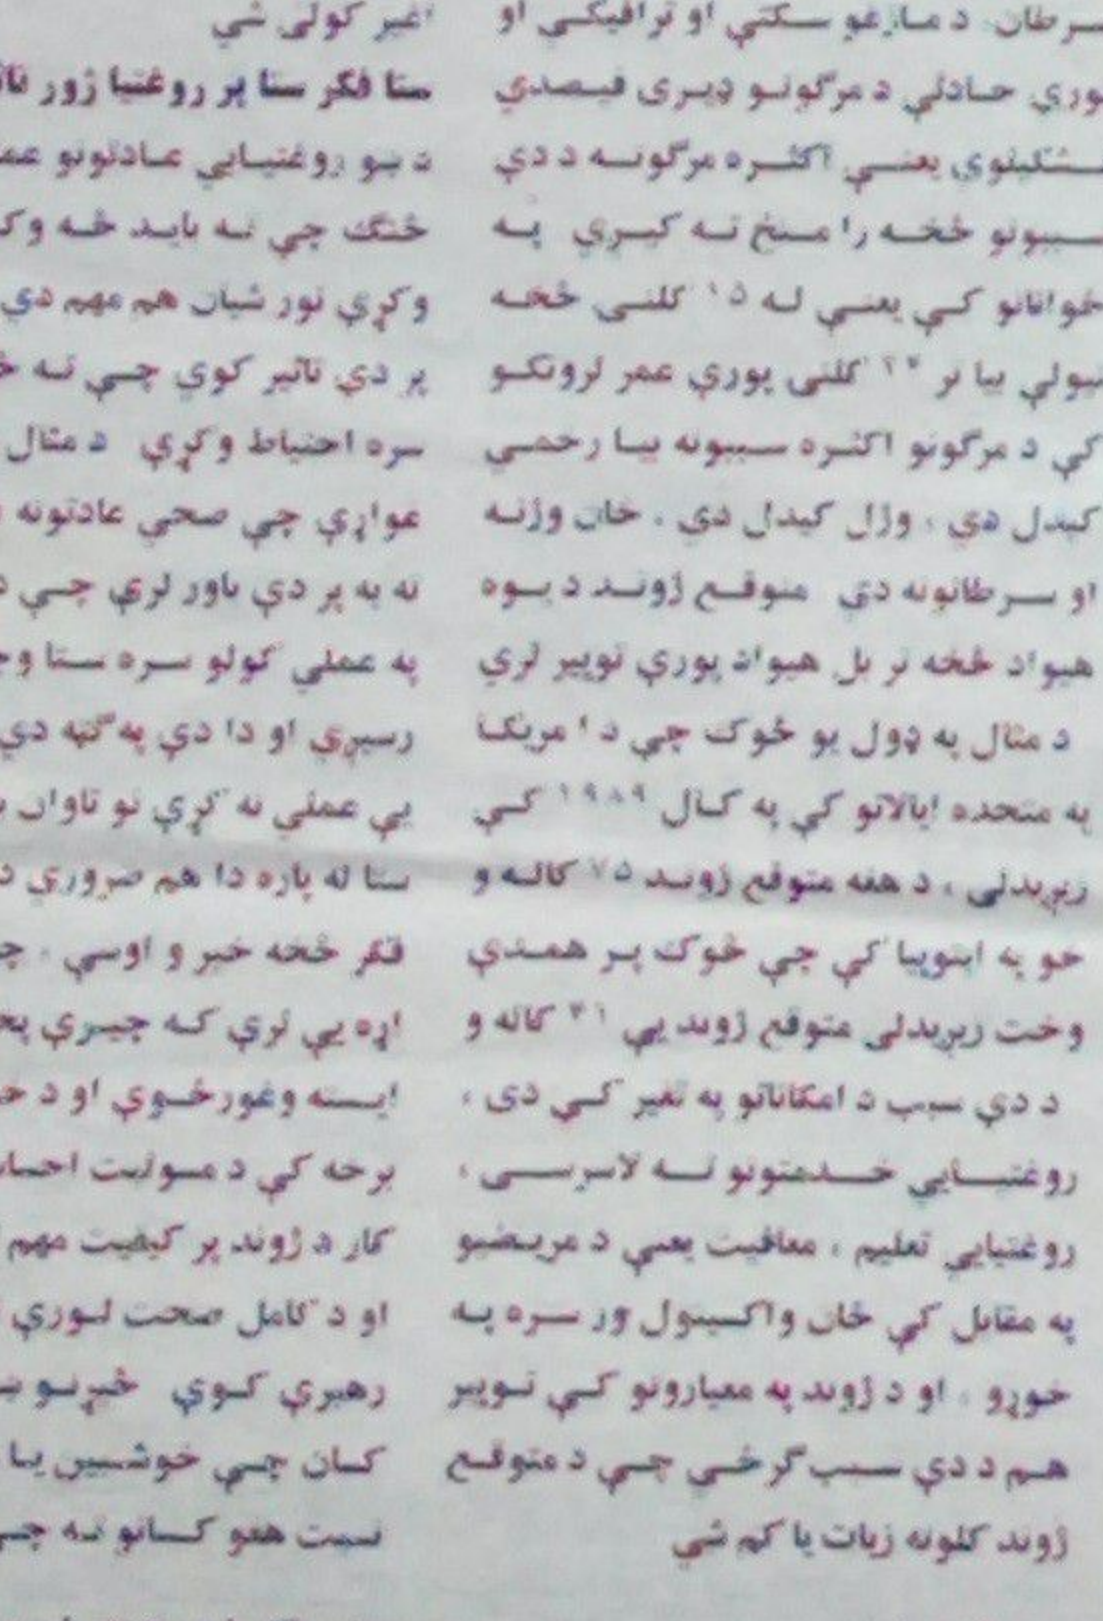 سرطان د مازغو سکتې او ترافیکي او
نورې حادثې د مرگونو ډیری فیصدي
تشکیلوي یعنې اکثره مرگونه د دې
سببونو څخه را منځ ته کیږي په
ځوانانو کې یعنې له ۱۵ کلنۍ څخه
نیولې بیا تر ۲۴ کلنۍ پورې عمر لرونکو
کې د مرگونو اکثره سببونه بیا زخمي
کیدل دي ، وژل کیدل دي ، ځان وژنه
او سرطانونه دي متوقع ژوند د یوه
هیواد څخه تر بل هیواد پورې توپیر لري
د مثال په ډول یو څوک چې د امریکا
په متحده ایالاتو کې په کال ۱۹۸۹ کې
زیږیدلی ، د هغه متوقع ژوند ۷۵ کاله و
خو په ایتوپیا کې چې څوک پر همدې
وخت زیږیدلی متوقع ژوند یې ۴۱ کاله و
د دې سبب د امکاناتو په تغیر کې دی ،
روغتیایي خدمتونو ته لاسرسی ،
روغتیایي تعلیم ، معافیت یعنې د مریضیو
په مقابل کې ځان واکسینول ور سره په
خوړو ، او د ژوند په معیارونو کې توپیر
هم د دې سبب گرځي چې د متوقع
ژوند کلونه زیات یا کم شي
تغیر کولی شي
ستا فکر ستا پر روغتیا ژور
د ښو روغتیایي عادتونو
څنگه چې ته باید څه
وکړې نور شیان هم مهم دي
پر دې تاثیر کوي چې ته
سره احتیاط وکړې د مثال
غواړې چې صحي عادتونه
ته به پر دې باور لرې چې
په عملي کولو سره ستا
رسیږي او دا دې په گټه دي
یې عملي نه کړې نو تاوان
ستا له پاره دا هم ضروري
فکر څخه خبر و اوسې ،
اړه یې لرې که چیرې
ایسته وغورځوې او د
برخه کې د مسولیت
کار د ژوند پر کیفیت مهم
او د کامل صحت لورې
رهبري کوي څیړنو
کسان چې خوشبین یا
نسبت هغو کسانو ته